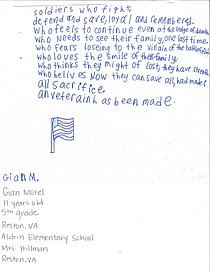 soldiers who fight
defend and save, loyal and remembered.
who feels to continue even at the ledge of death
who needs to see their family, one last time.
who fears loseing to the villain of the battlefield
who loves the smile of their family
who thinks they might of lost, they have strength
who belives now they can save all, had made
all sacrifice.
an veterain has been made.
Gian M.
Gian Morel
11 years old
5th grade
Reston, VA
Aldrin Elementary School
Mrs Hillman
Reston, VA